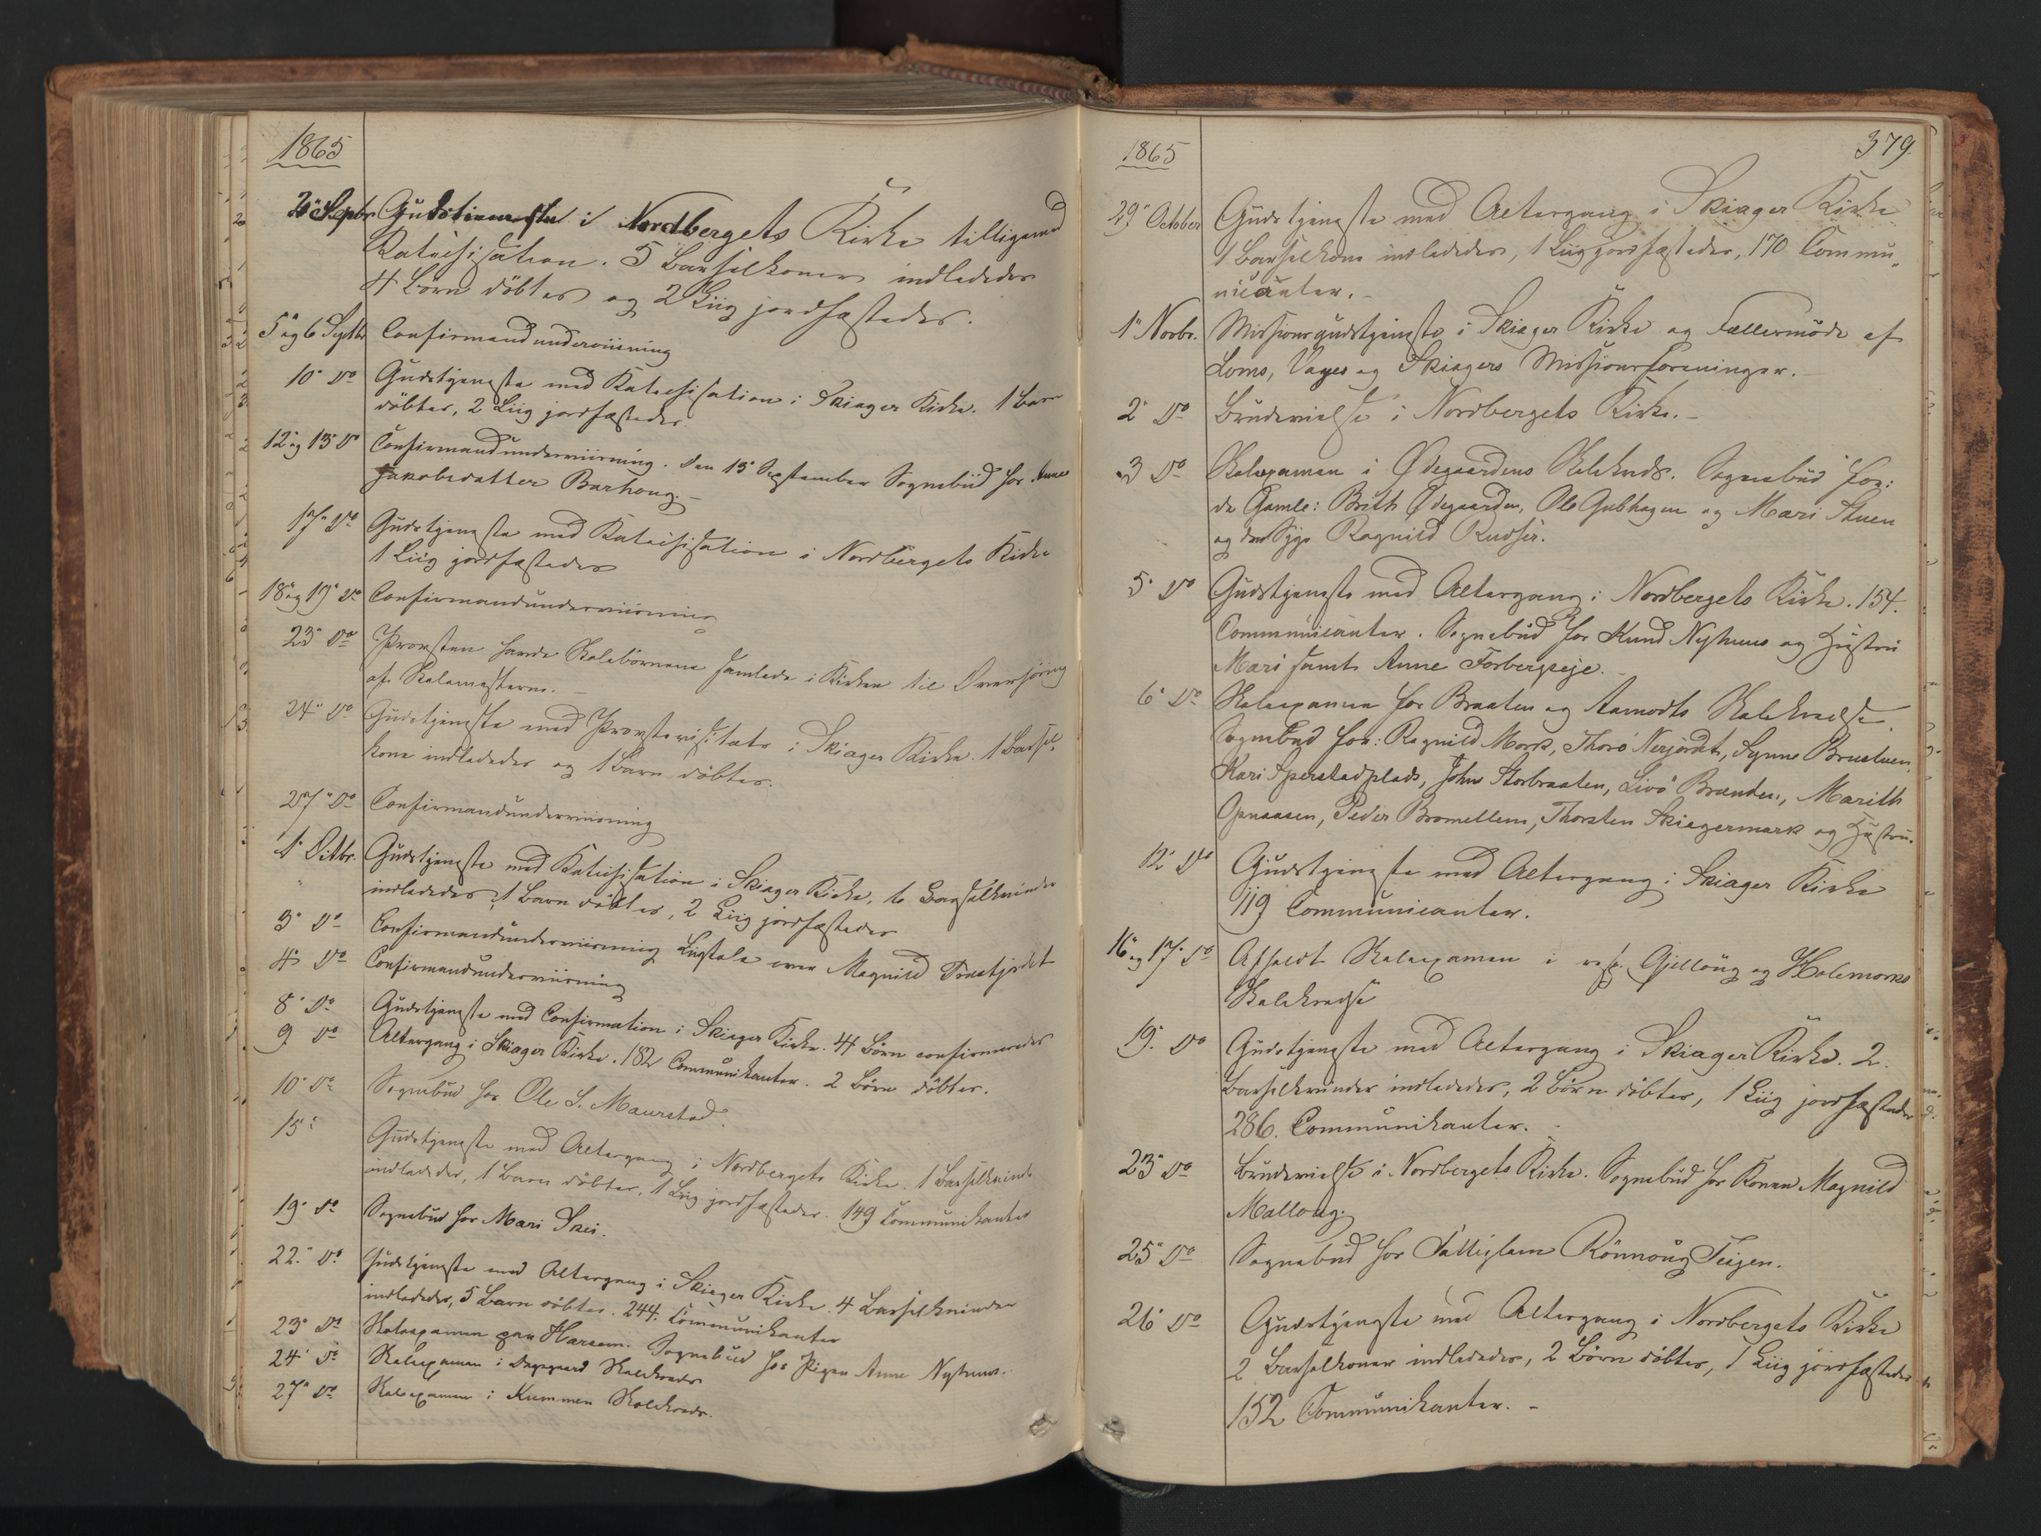 1865
3' Septbr. Gudstjeneste i Nordbergets Kirke tilligemed
Katechisation. 5 Barselkoner indlededes
4 Børn døbtes og 2 Liig jordfæstedes.
5' og 6 Septbr Confirmandunderviisning
10' Do Gudstjeneste med Katechisation i Skiager Kirke. 1 Barn
døbtes, 2 Liig jordfæstedes.
12' og 13' Do Confirmandunderviisning. Den 13' September Sognebud hos Anne
Jakobsdatter Barhoug. –
17' Do Gudstjeneste med Katechisation i Nordbergets Kirke
1 Liig jordfæstedes
18' og 19' Do Confirmandunderviisning
23' Do Provsten havde Skolebørnene samlede i Kirken til Overhøring
af Skolemesterne. –
24' Do Gudstjeneste med Provstevisitats i Skiager Kirke. 1 Barsel-
kone indlededes og 1 Barn døbtes.
27' Do Confirmandunderviisning
1' Octbr. Gudstjeneste med Katechisation i Skiager Kirke, 6 Barselkvinder
indlededes, 1 Barn døbtes, 2 Liig jordfæstedes
3' Do Confirmandunderviisning Liigtale over Magnild
4' Do Confirmandunderviisning
8' Do Gudstjeneste med Confirmation i Skiager Kirke. 44 Børn confirmeredes
9 Do Altergang i Skiager Kirke. 182 Communikanter. 2 Børn døbtes.
10' Do Sognebud hos Ole S. Maurstad.
15' Gudstjeneste med Altergang i Nordbergets Kirke. 1 Barselkvinde
indlededes, 1 Barn døbtes, 1 Liig jordfæstedes. 149 Communikanter
19' Do Sognebud hos Mari Skei.
22' Do Gudstjeneste med Altergang i Skiager Kirke. 4 Barselkvinder
indlededes, 5 Børn døbtes. 244. Communikanter
23' Do Skoleexamen paa Harsem. Sognebud hos Pigen Anne Nyhuus.
24' Do Skoleexamen i Dagsgaard Skolekreds
27' Do Skoleexamen i Kummen Skolekreds.
1865 379.
29' October Gudstjeneste med Altergang i Skiager Kirke.
1 Barselkone indlededes, 1 Liig jordfæstedes, 170 Commu-
nicanter. –
1' Novbr. Missionsgudstjeneste i Skiager Kirke og Fællesmøde af
Loms, Vages og Skiagers Missionsforeninger. –
2' Do Brudevielse i Nordbergets Kirke. –
3 Do Skoleexamen i Ødegaardens Skolekreds. Sognebud hos:
de Gamle: Brith Ødegaarden, Ole Gubhagen og Mari Stuen
og den Syge Ragnild Rudsir.
5' Do Gudstjeneste med Altergang i Nordbergets Kirke. 154.
Communicanter. Sognebud hos Knud Nyhuus og Hustru
Mari samt Anne Forbergseje. –
6' Do Skoleexamen hos Braaten og Aamodts Skolekredse
Sognebud hos: Ragnild Mork, Thorø Nerjordet, Synne Bruestuen,
Kari Sperstadplads, Johne Storbraaten, Livø Brænden, Marith
Opnaasen, Peder Bromellem, Thorsten Skiagermark og Hustru.
12' Do Gudstjeneste med Altergang i Skiager Kirke
119 Communicanter.
16' og 17' Do Afholdt Skoleexamen i resp. Gjelloug og Holemorks
Skolekredse
19' Do Gudstjeneste med Altergang i Skiager Kirke. 2.
Barselkvinder indlededes, 2 Børn døbtes, 1 Liig jordfæstedes
286. Communikanter. –
23' Do Brudevielse i Nordbergets Kirke. Sognebud hos Konen Magnild
Malloug.
25' Do Sognebud hos Fattiglem Rønnoug Teigen.
26' Do Gudstjeneste med Altergang i Nordbergets Kirke
2 Barselkoner indlededes, 2 Børn døbtes, 1 Liig jordfæstedes
152 Communikanter. –